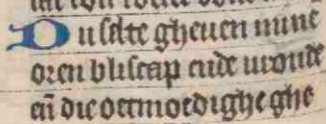 Du selte gheuen mine
oren bliscap ende uroude
en̄ die oetmoedighe ghe